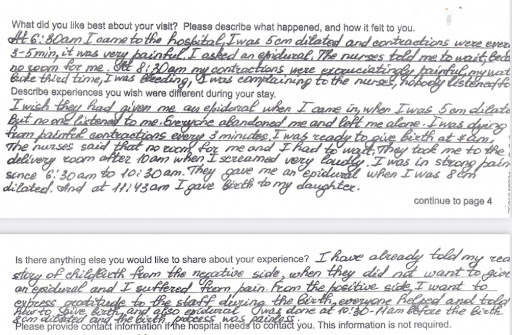 What did you like best about your visit? Please describe what happened, and how it felt to you.
At 6:30am I came to the hospital, I was 5cm dilated and contractions were every
3-5min, it was very painful. I asked an epidural. The nurses told me to wait,
no room for me. At 8:30am my contractions were excruciatingly painful, my wat
third time, I was bleeding, I was complaining to the nurses, nobody listened to
Describe experiences you wish were different during your stay.
I wish they had given me an epidural when I came in, when I was 5cm dilate
But no one listened to me. Everyone abandoned me and left me alone. I was dying
from painful contractions every 3 minutes, I was ready to give birth at
The nurses said that no room for me and I had to wait. They took me to the
delivery room after 10am when I screamed very loudly. I was in strong pain
since 6:30am to 10:30am. They gave me an epidural when I was 8cm
dilated. And at 11:43am I gave birth to my daughter.
continue to page 4
Is there anything else you would like to share about your experience? I have already told my rea
story of childbirth from the negative side, when they did not want to give
an epidural and I suffered from pain. From the positive side, I want to
express gratitude to the staff during the birth, everyone helped and told
how to give birth, and also epidural was done at 10:30-11am before the birth.
dilated and the birth process was painless.
Please provide contact information if the hospital needs to contact you. This information is not required.